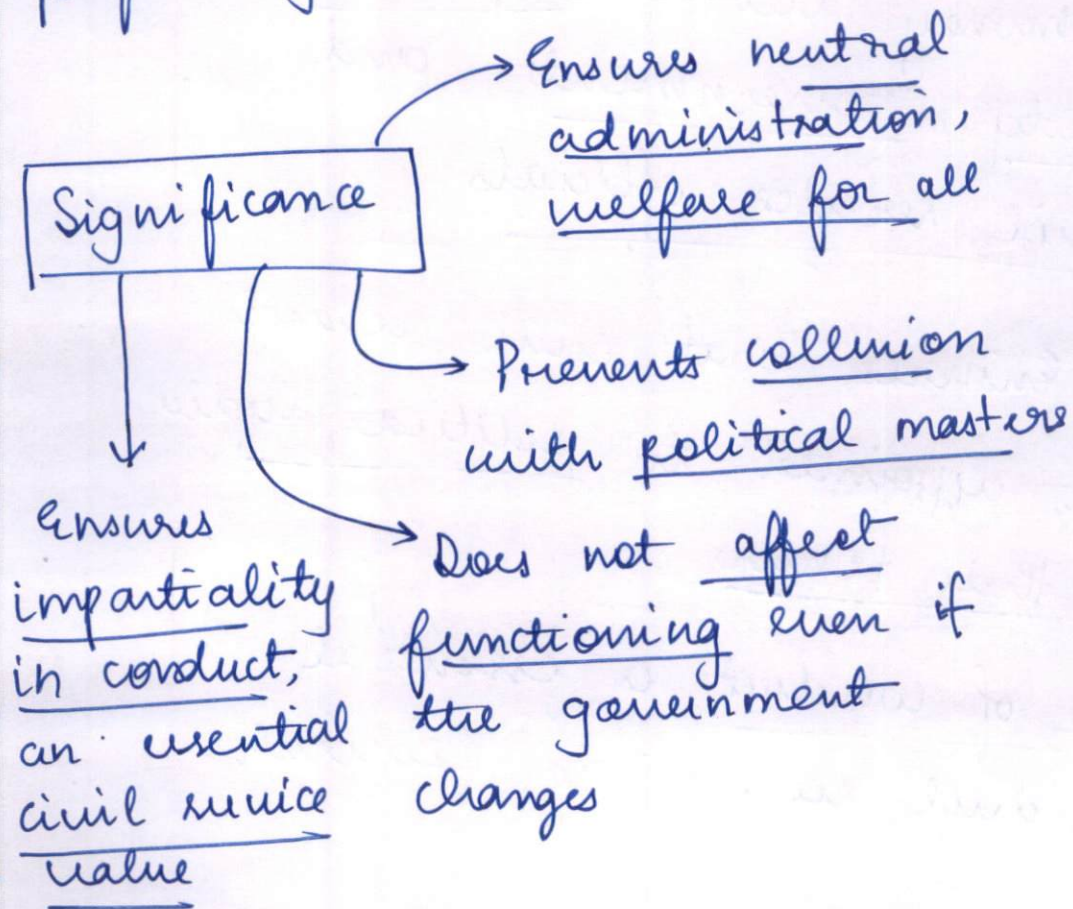 Ensures neutral
administration,
welfare for all
Significance
Prevents collusion
with political masters
Does not affect
functioning even if
the government
changes
Ensures
impartiality
in conduct,
an essential
civil service
value